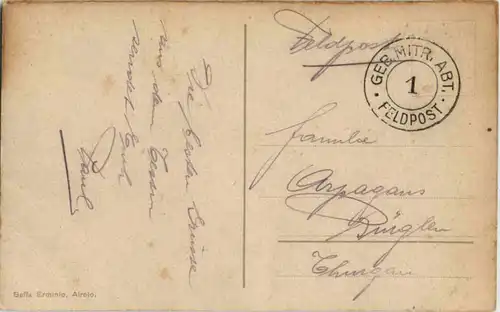 Die besten Grüsse
aus dem Tessin
sendet Euch
Paul
Feldpost
GEB. MITR. ABT.
1
FELDPOST
Familie
Arpagaus
Bürglen
Thurgau
Gaffa Erminio, Airolo.